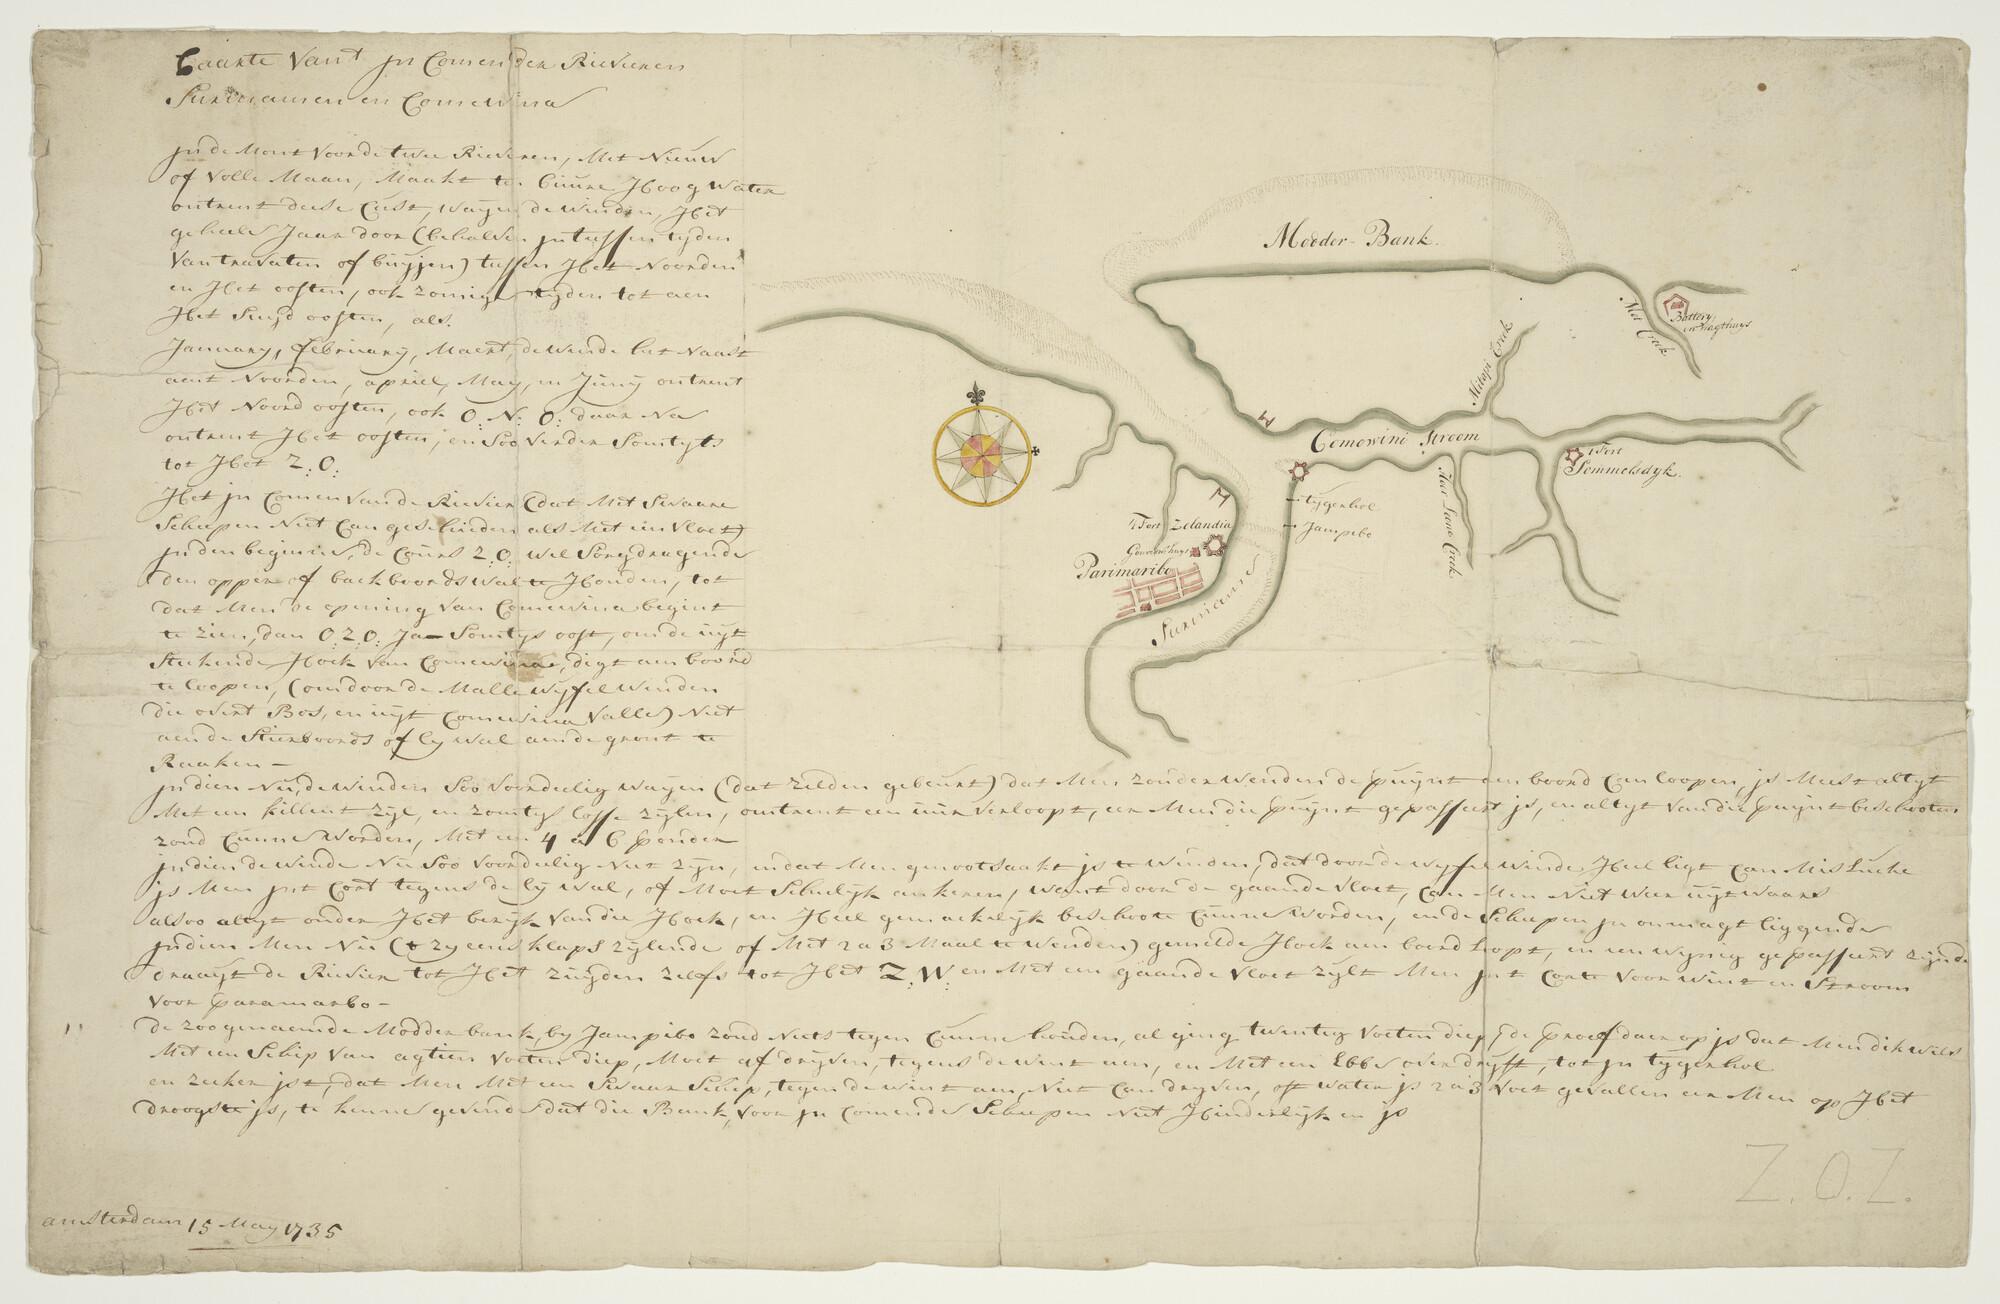 Caarte Vant jn Comen der Rievieren
Surinamen en Comewina
jn de Mont voor de twee Rievieren, Met Nieuw
of volle Maan, Maakt te 6 uure Hoog Water
ontrent dese Cust, wayen de winden, Het
geheele Jaar door (behalven jn tussen tyden
van travaten of buyjen) tussen Het Noorden
en Het oosten, ook zomige tyden tot aen
Het Suyd oosten, als.
January, february, Maert, de winde Naast
aent Noorden, apriel, May, en Juny ontrent
Het Noord oosten, ook O: N: O: daar Na
ontrent Het oosten, en Soo verder Somtyts
tot Het Z: O:
Het jn Comen van de Rievier (dat Met Swaare
Scheepen Niet Can geschieden als Met een Vloet)
jn den beginne, de Cours Z: O: wel Sorgdragende
den opper of backboords wal te Houden, tot
dat Men de opening van Comewina begint
te zien, dan O: Z: O: Ja Somtys oost, om de uyt
Stekende Hoek van Comewina, digt aen boord
te loopen, (om door de Malle wyfel winden
die overt Bos, en uyt Comewina Valle) Niet
aen de Stierboords of ly wal aen de gront te
Raaken —
jndien Nu, de winden Soo voordeelig wayen (dat zelden gebeurt) dat Men zonder wenden de puynt aen boord Can loopen, js Meest altyt
Met een killent zyl, en zomtys losse zylen, ontrent een uur verloopt, eer Men die puynt gepasseert js, en altyt van die puynt beschooten
zoud Cunne worden, Met een 4 a 6 ponder
jndien de winde Nu Soo voordeelig Niet zyn, en dat Men genootsaakt js te winden, dat door de wyfel winde Heel ligt Can Mislucke
js Men jnt Cort tegens de ly wal, of Moet Schielyk ankeren, want door de gaande vloet, Can Men Niet weer uyt waars
alsoo altyt onder Het beryk van die Hoek, en Heel gemackelyk beschoote Cunne worden, en de Scheepen jn onmagt liggende
jndien Men Nu (t zy eens klaps zylende of Met 2 a 3 Maal te wenden) gemelde Hoek aen boord loopt, en een wynig gepasseert zynde
draayt de Rievier tot Het zuyden zelfs tot Het Z: W: en Met een gaande vloet zylt Men jnt Corte voor wint en Stroom
voor paramarbo —
de zoogenaemde Modder bank, by Jampibo zoud Niets tegen Cunne houden, al ging twentig voeten diep, de proef daer op js dat Men dikwels
Met een Schip van agtien voeten diep, Moet af dryven, tegens de wint aen, en Met een Ebbe over dryft, tot jn tygerhol
en zeeker jst, dat Men Met een Swaar Schip, tegen de wint aen, Niet Can dryven, oft water js 2 a 3 voet gevallen eer Men op Het
droogste js, te kenne gevende dat die Bank, voor jn Comende Scheepen Niet Hinderlyk en js
amsterdam 15 May 1735
Modder-Bank.
Met Creek
Battery en wagthuys
Mitapi Creek
Comewini Stroom
't Fort
Sommelsdyk.
tygerhol
Jampibo
't Fort Zelandia
Gouverns huys
Parimaribo
Suriname
Z.O.Z.